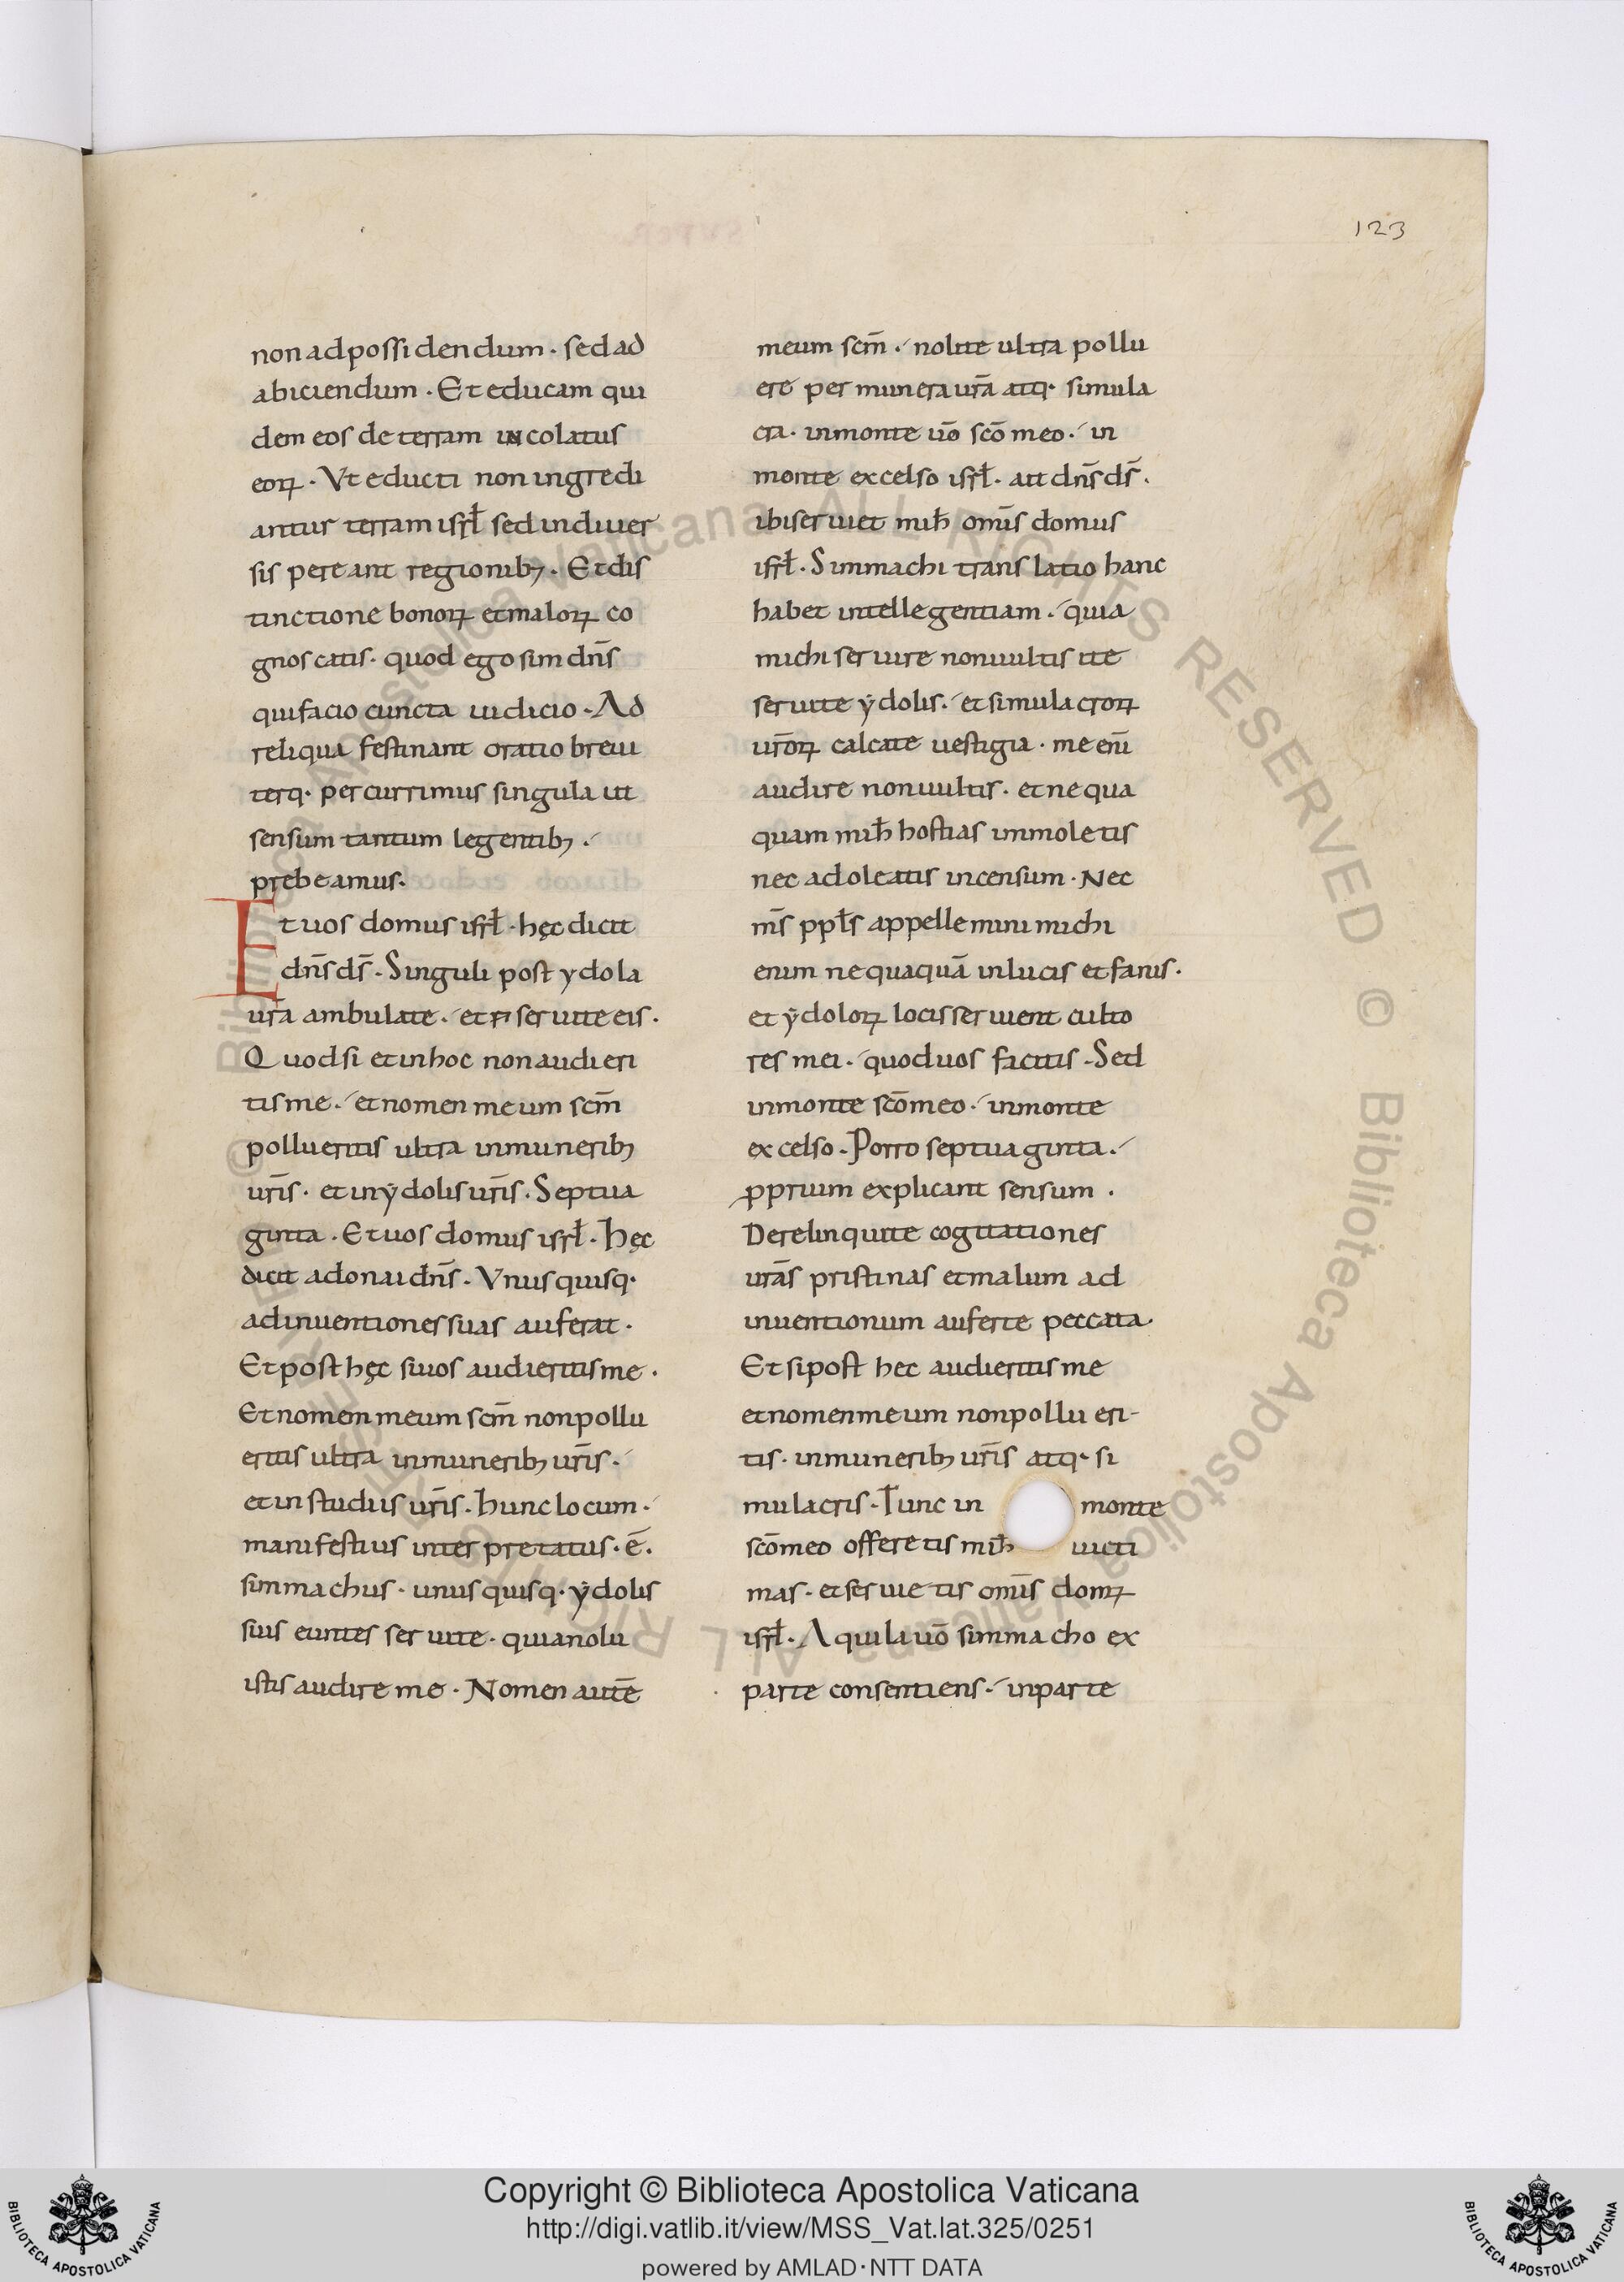 123
non ad possidendum · sed ad
abiciendum · Et educam qui
dem eos de terram incolatus
eoꝝ · Vt educti non ingredi
antur terram isrł sed in diuer
sis pereant regionibꝫ · Et dis
tinctione bonoꝝ et maloꝝ co
gnoscatis · quod ego sim dn̄s
qui facio cuncta iudicio · Ad
reliqua festinant oratio breui
terq· percurrimus singula ut
sensum tantum legentibꝫ ·
prebeamus ·
Et uos domus isrł · hęc dicit
dn̄s ds̄ · Singuli post ydola
ur̄a ambulate · et seruite eis ·
Quod si et in hoc non audieri
tis me · et nomen meum scm̄
pollueritis ultra in muneribꝫ
ur̄is · et in ẏdolis ur̄is · Septua
ginta · Et uos domus isrł · hęc
dicit adonai dn̄s · Vnusquisq·
adinuentiones suas auferat ·
Et post hęc si uos audieritis me ·
Et nomen meum scm̄ non pollu
eritis ultra in muneribꝫ ur̄is ·
et in studiis ur̄is · hunc locum ·
manifestius interpretatus · ē ·
simmachus · unusquisq· ẏdolis
siuis euntes seruite · quia nolu
istis audire me · Nomen autē
meum scm̄ · nolite ultra pollu
ere per munera ur̄a atq· simula
cra · in monte uō scō meo · in
monte excelso isrł · ait dn̄s ds̄ ·
ibi seruiet mih̄ omīs domus
isrł · Simmachi translatio hanc
habet intellegentiam · quia
michi seruire non uultis ite
seruite ẏdolis · et simulacroꝝ
ur̄oꝝ calcate uestigia · me enī
audire non uultis · et nequa
quam mih̄ hostias immoletis
nec adoleatis incensum · Nec
m̄s ppłs appellemini michi
enim nequaquā in lucis et fanis ·
et ẏdoloꝝ locis seruient culto
res mei · quod uos facitis · Sed
in monte scō meo · in monte
excelso · Porro septuaginta ·
ꝓprium explicant sensum ·
Derelinquite cogitationes
urās pristinas et malum ad
inuentionum auferte peccata ·
Et si post hec audieritis me
et nomen meum non pollueri-
tis · in muneribꝫ ur̄is atq· si
mulacris · Tunc in monte
scō meo offeretis mih̄ uicti
mas · et seruietis omīs domꝝ
isrł · Aquila uō simmacho ex
parte consentiens · in parte
Copyright © Biblioteca Apostolica Vaticana
http://digi.vatlib.it/view/MSS_Vat.lat.325/0251
powered by AMLAD·NTT DATA
BIBLIOTECA APOSTOLICA VATICANA
BIBLIOTECA APOSTOLICA VATICANA
© Biblioteca Apostolica Vaticana ALL RIGHTS RESERVED
© Biblioteca Apostolica Vaticana ALL RIGHTS RESERVED